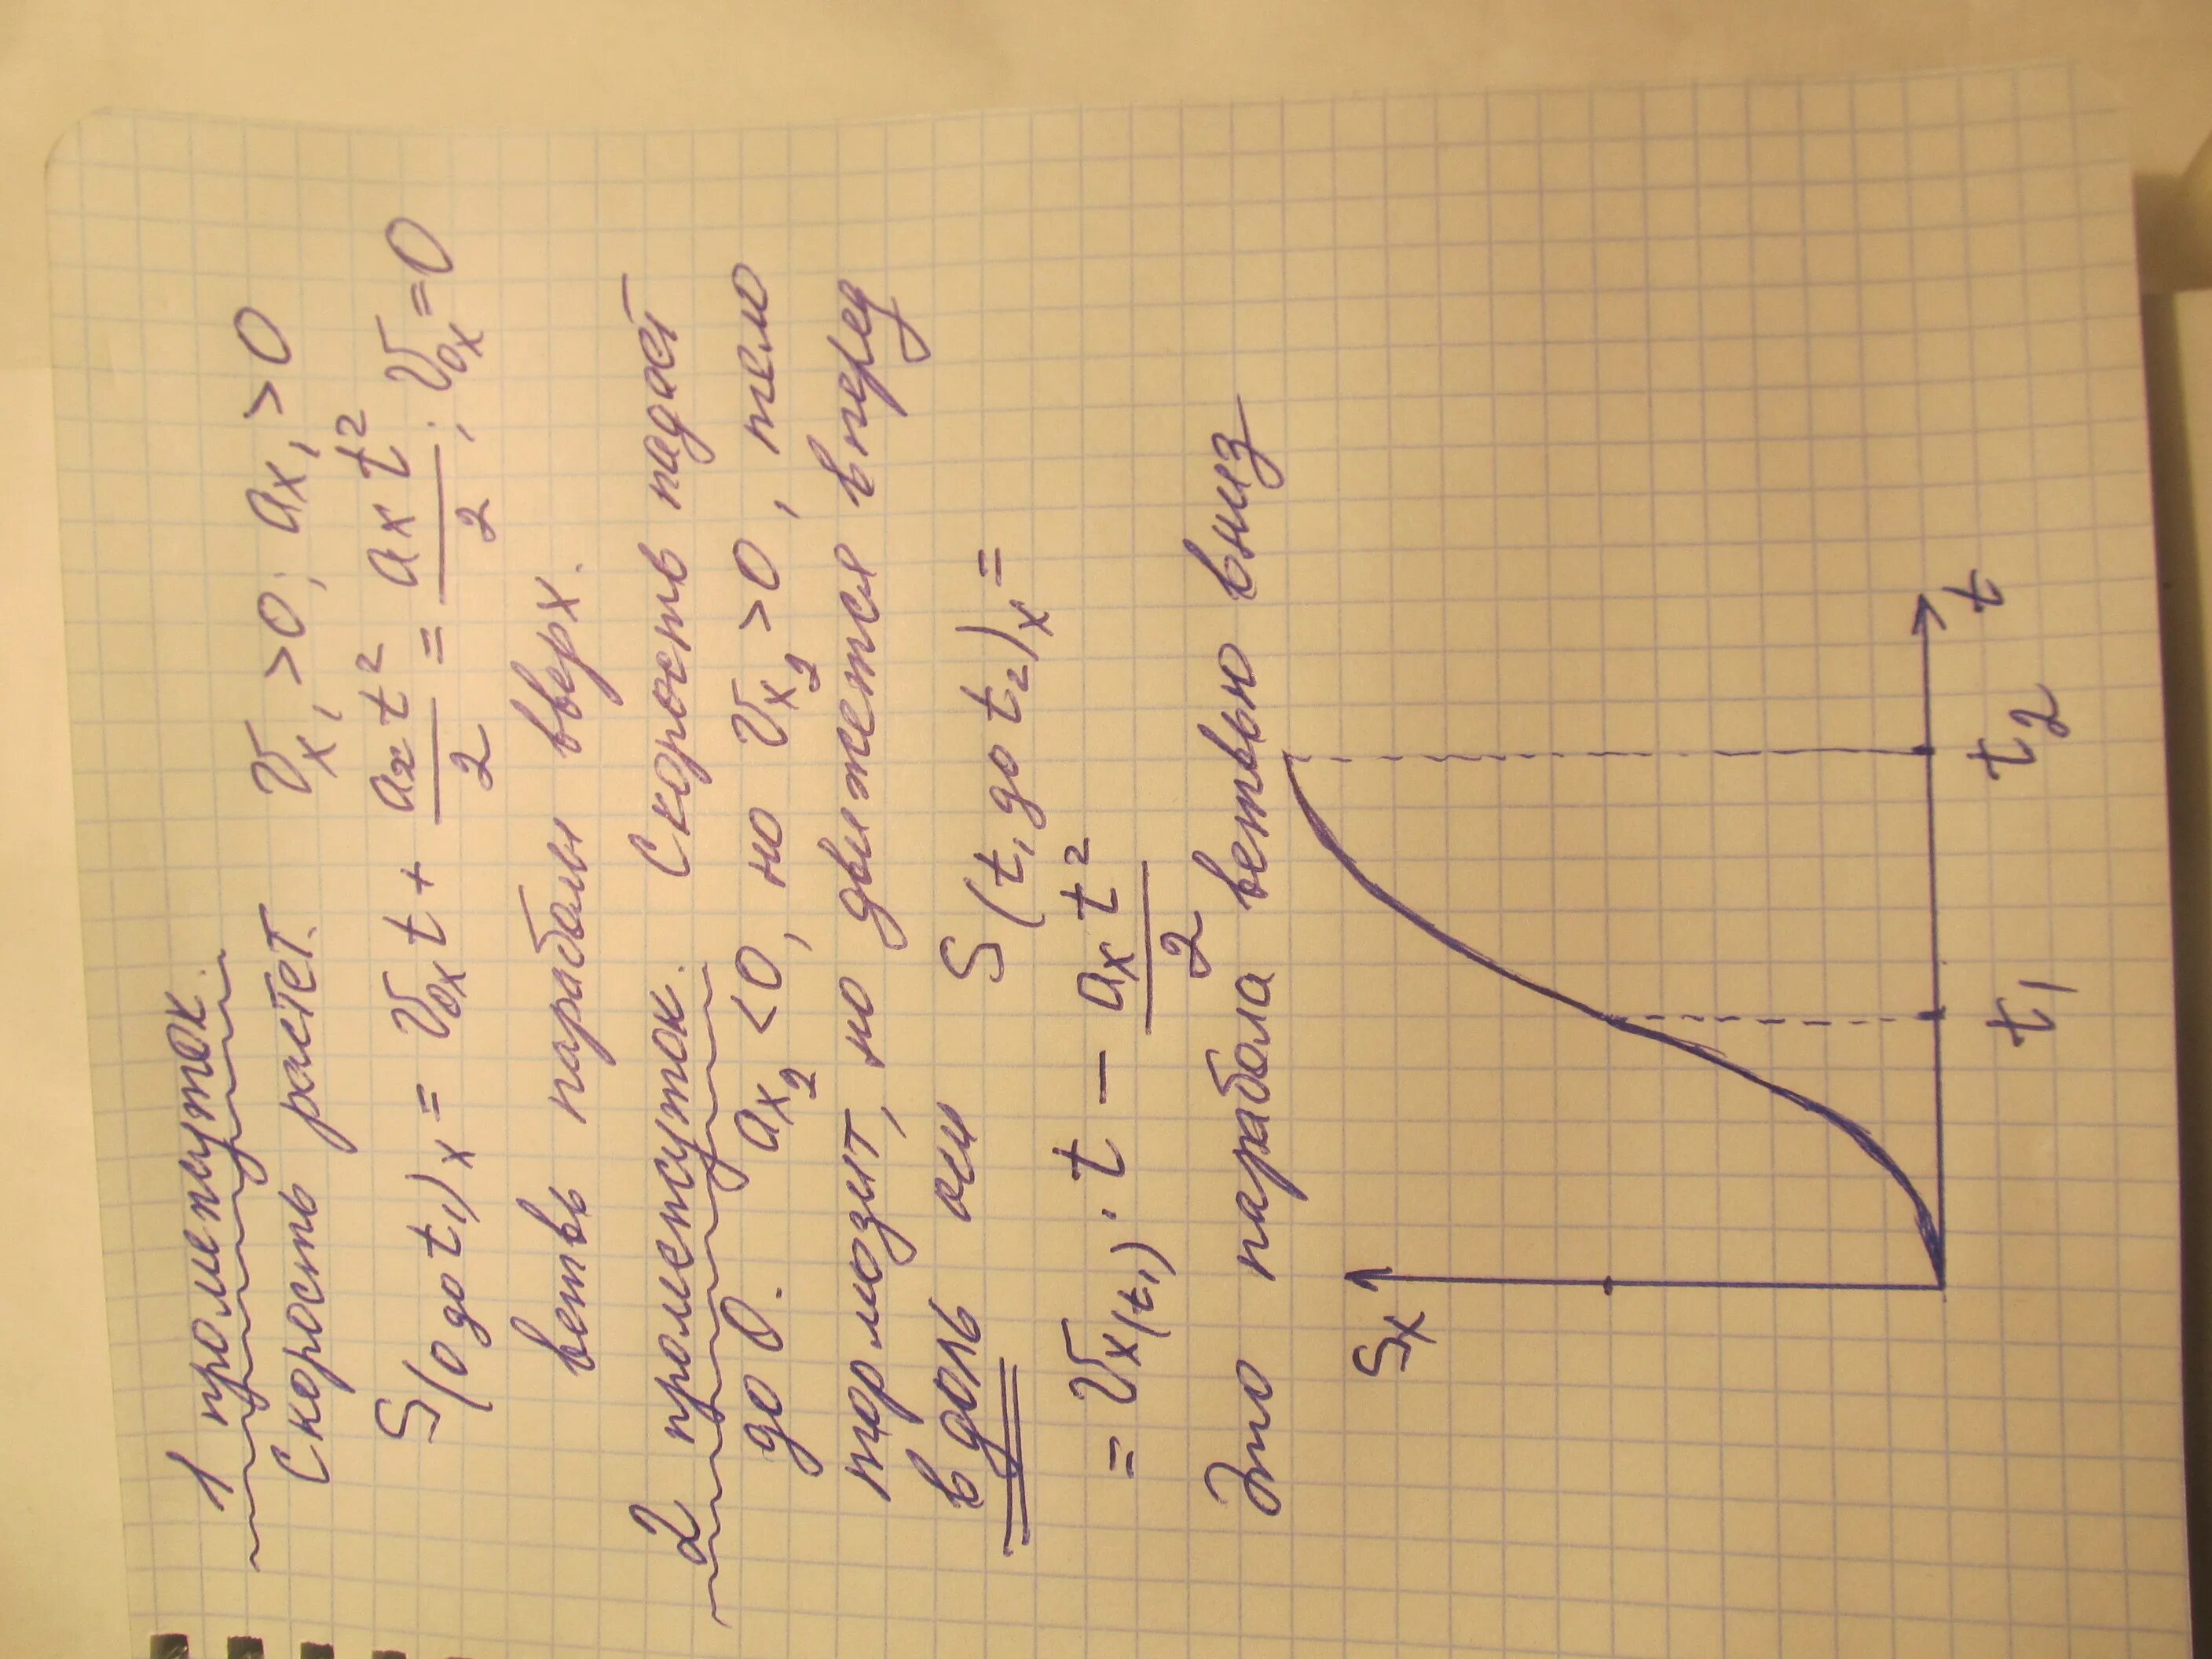 1 промежуток.
Скорость растёт. υx₁>0; ax₁>0
S(0 до t₁)x = υ0x t + axt²/2 = axt²/2; υ0x=0
ветвь параболы вверх.
2 промежуток. Скорость падает
до 0. ax₂<0, но υx₂>0, тело
тормозит, но движется вперед
вдоль оси S(t₁ до t₂)x =
= υx(t₁) · t − axt²/2
Это парабола ветвью вниз
Sx
t₁
t₂
t